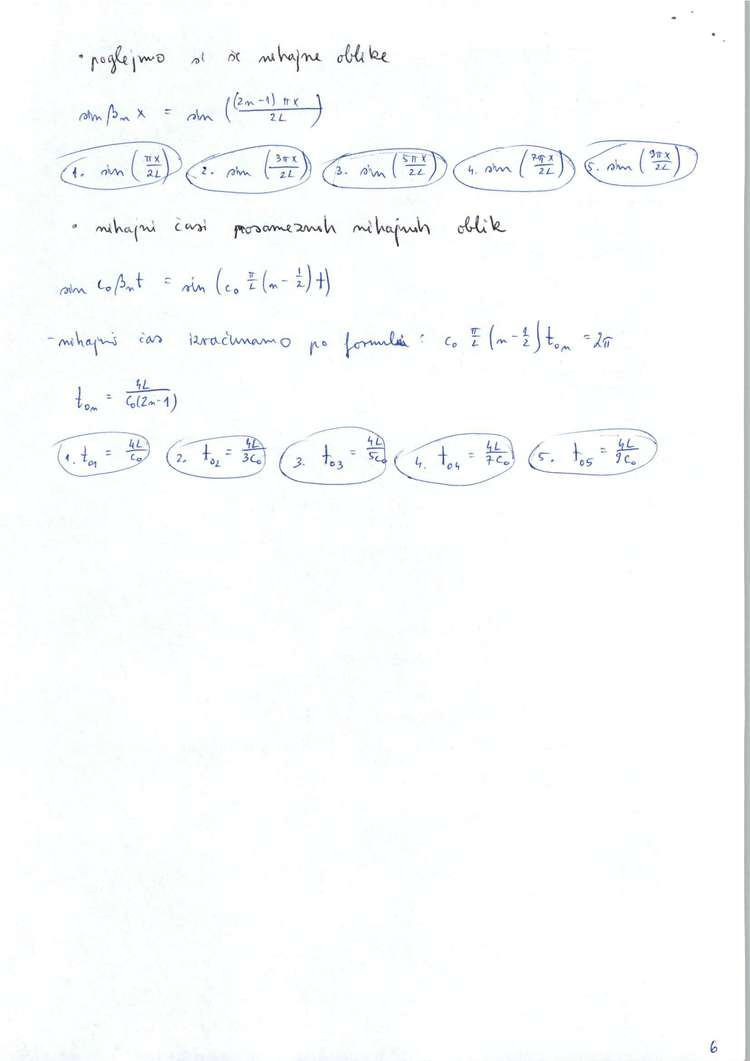 • poglejmo si še nihajne oblike
sin βₙ x = sin ((2n-1) π x / 2L)
1. sin (πx / 2L) 2. sin (3πx / 2L) 3. sin (5πx / 2L) 4. sin (7πx / 2L) 5. sin (9πx / 2L)
• nihajni časi posameznih nihajnih oblik
sin c₀βₙt = sin (c₀ π/L (n - 1/2) t)
- nihajni čas izračunamo po formuli: c₀ π/L (n - 1/2) t₀ₙ = 2π
t₀ₙ = 4L / c₀(2n-1)
1. t₀₁ = 4L / c₀ 2. t₀₂ = 4L / 3c₀ 3. t₀₃ = 4L / 5c₀ 4. t₀₄ = 4L / 7c₀ 5. t₀₅ = 4L / 9c₀
6